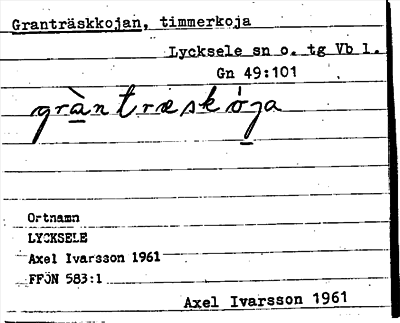 Granträskkojan, timmerkoja
Lycksele sn o. tg Vb l.
Gn 49:101
gràntræskója
Ortnamn
LYCKSELE
Axel Ivarsson 1961
FFÖN 583:1
Axel Ivarsson 1961